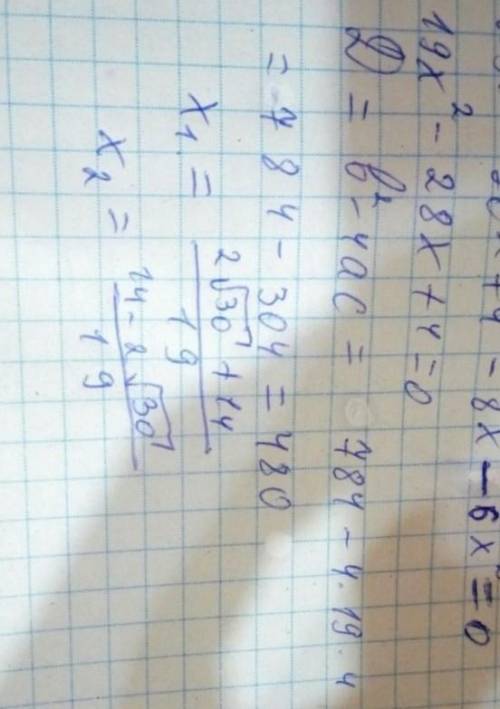 x + 4 - 8x - 6x² = 0
19x² - 28x + 4 = 0
D = b² - 4ac = 784 - 4·19·4
= 784 - 304 = 480
x₁ = (2√30 + 14)/19
x₂ = (14 - 2√30)/19